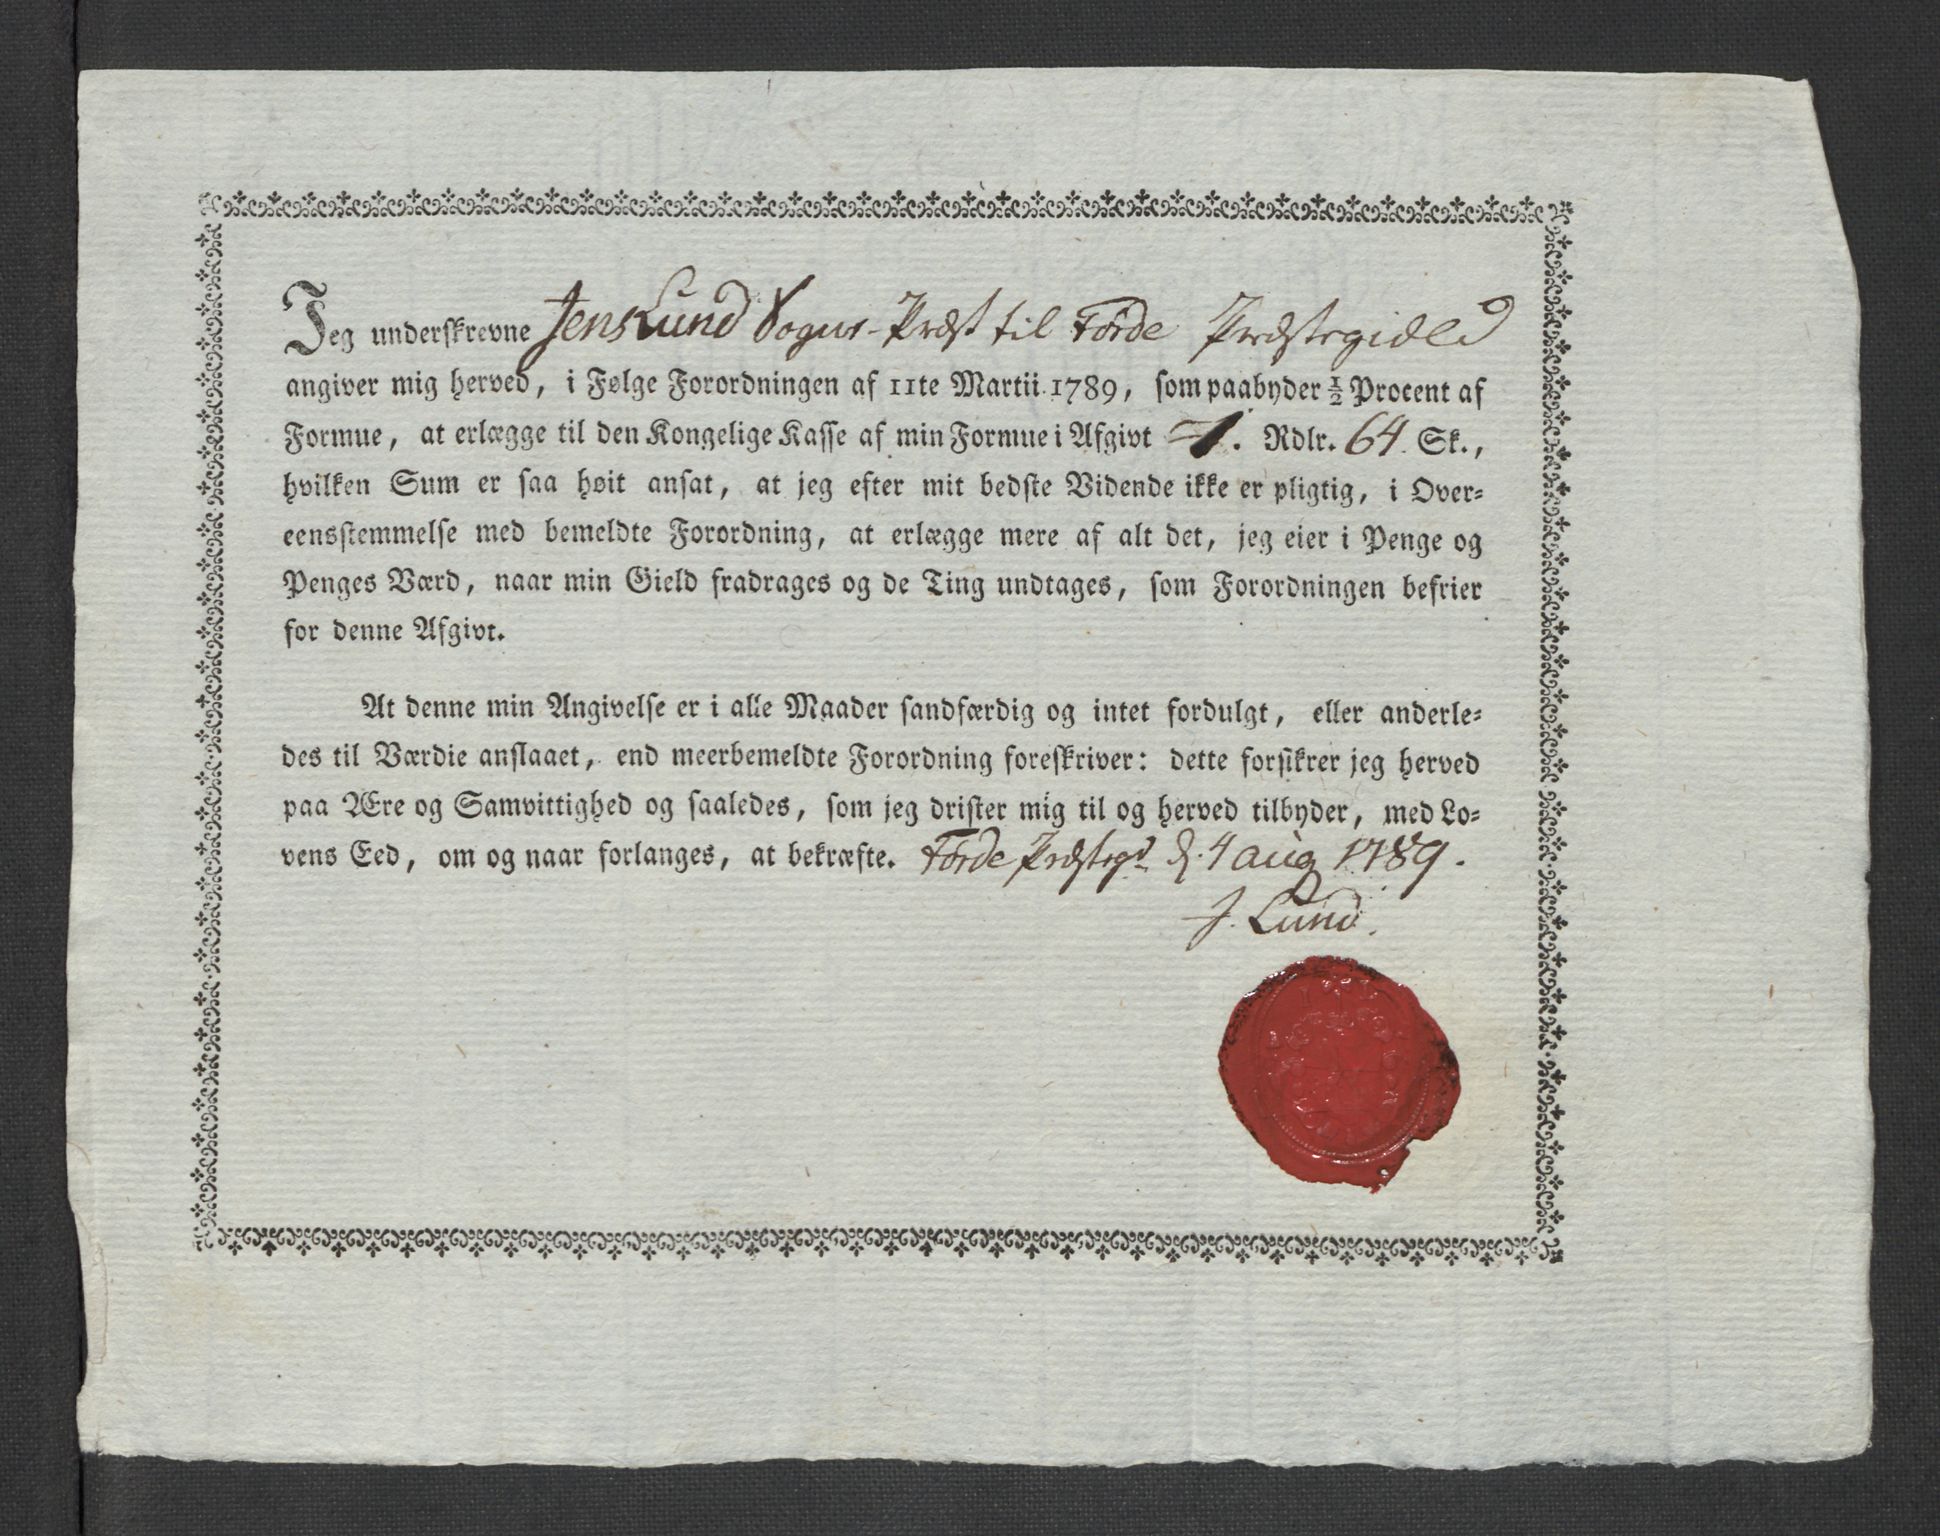 Jeg underskrevne Jens Lund Sogne-Præst til Førde Præstegield
angiver mig herved, i Følge Forordningen af 11te Martii 1789, som paabyder ½ Procent af
Formue, at erlægge til den Kongelige Kasse af min Formue i Afgivt 1. Rdlr. 64. Sk.,
hvilken Sum er saa høit ansat, at jeg efter mit bedste Vidende ikke er pligtig, i Over-
eensstemmelse med bemeldte Forordning, at erlægge mere af alt det, jeg eier i Penge og
Penges Værd, naar min Gield fradrages og de Ting undtages, som Forordningen befrier
for denne Afgivt.
At denne min Angivelse er i alle Maader sandfærdig og intet fordulgt, eller anderle-
des til Værdie anslaaet, end meerbemeldte Forordning foreskriver: dette forsikrer jeg herved
paa Ære og Samvittighed og saaledes, som jeg drister mig til og herved tilbyder, med Lo-
vens Eed, om og naar forlanges, at bekræfte. Førde Præstegd d. 4 aug 1789.
J. Lund.